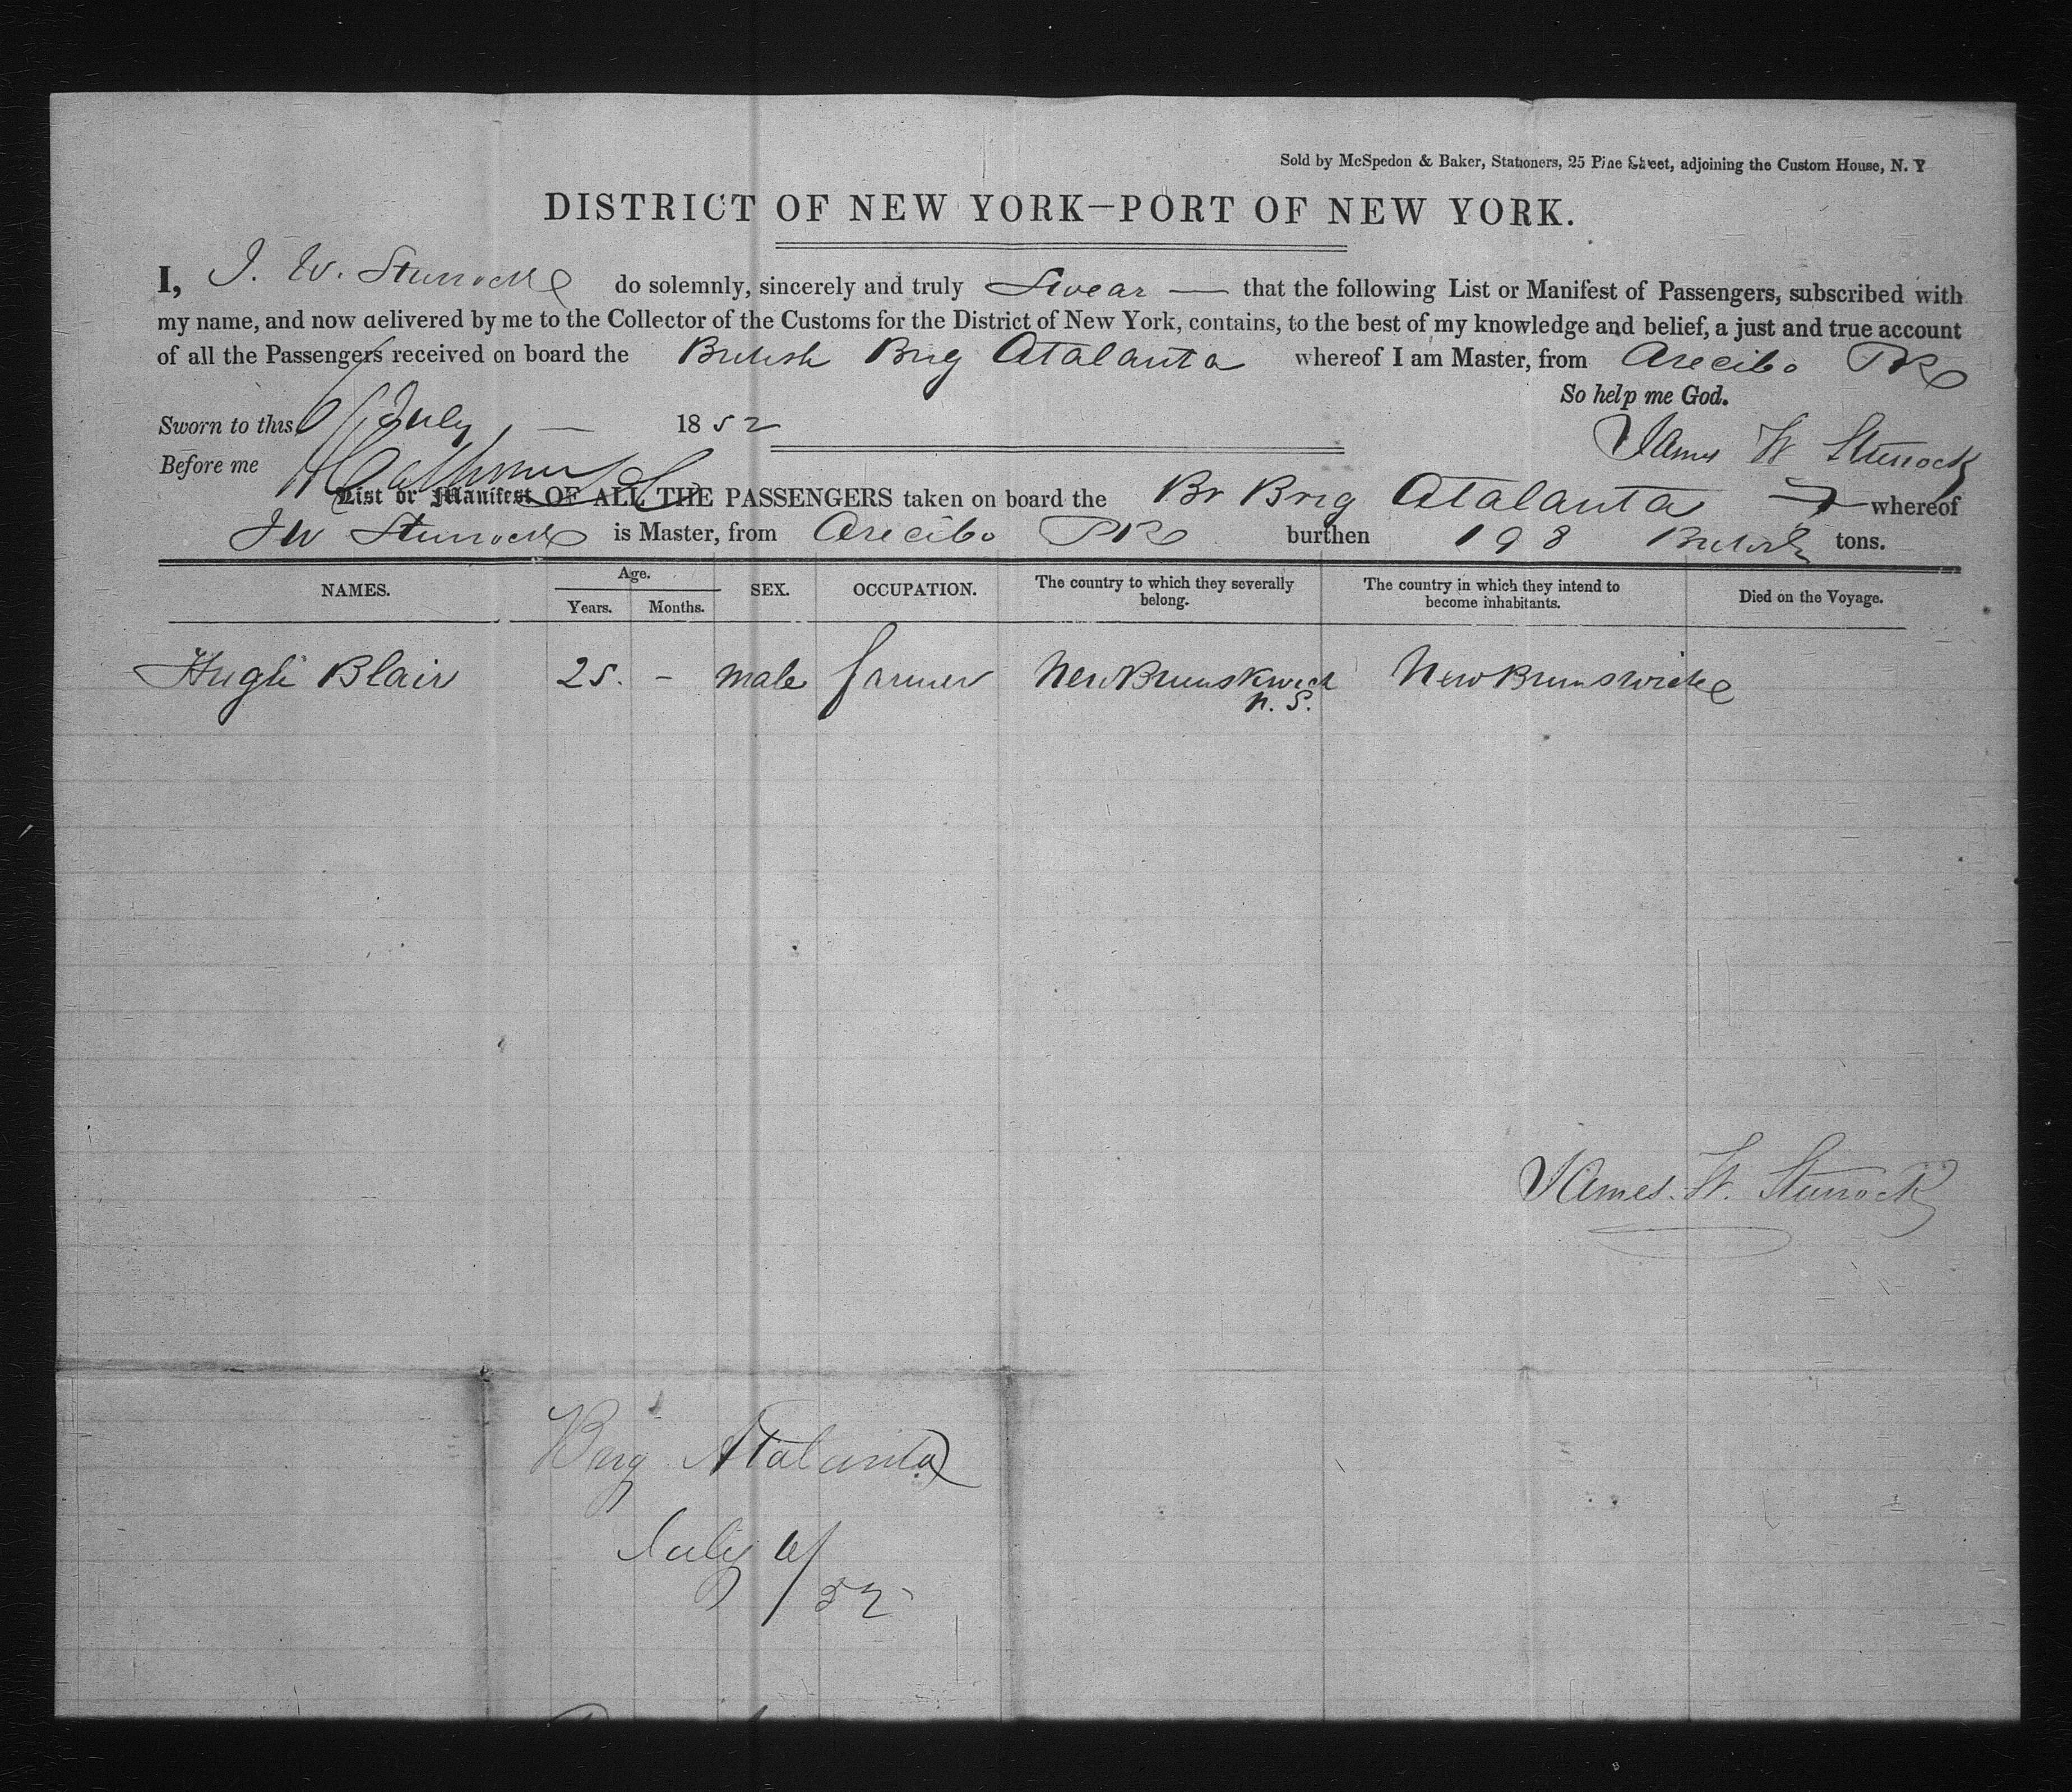 Sold by McSpedon & Baker, Stationers, 25 Pine Street, adjoining the Custom House, N. Y
DISTRICT OF NEW YORK—PORT OF NEW YORK.
I, J. W. Sturrock do solemnly, sincerely and truly Swear — that the following List or Manifest of Passengers, subscribed with
my name, and now delivered by me to the Collector of the Customs for the District of New York, contains, to the best of my knowledge and belief, a just and true account
of all the Passengers received on board the British Brig Atalanta whereof I am Master, from Arecibo PR
So help me God.
Sworn to this 6 July, — 1852
James W Sturrock
Before me
List or Manifest OF ALL THE PASSENGERS taken on board the Br Brig Atalanta whereof
JW Sturrock is Master, from Arecibo PR burthen 198 British tons.
NAMES. Age. Years. Months. SEX. OCCUPATION. The country to which they severally belong. The country in which they intend to become inhabitants. Died on the Voyage.
Hugh Blair 25. - male farmer New Brunskwick New Brunswick
N. S.
James. W. Sturrock
Brig Atalanta
July 6/52